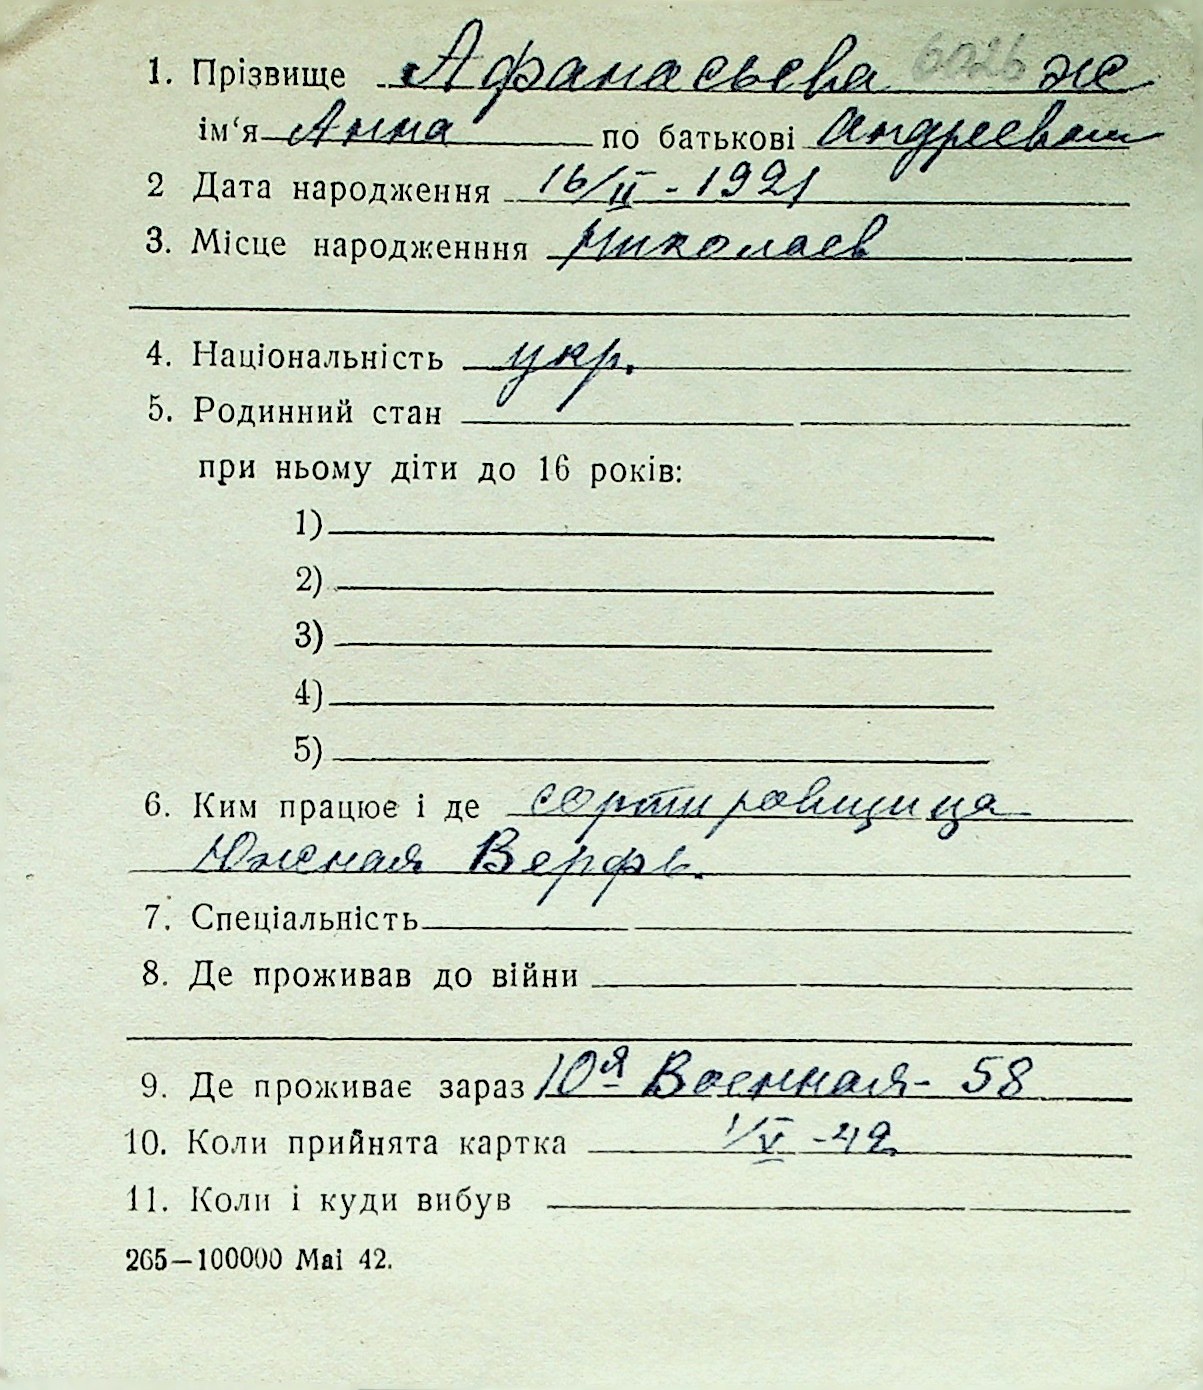 1. Прізвище Афанасьева 6026 ж
ім‘я Анна по батькові Андреевна
2 Дата народження 16/II - 1921
3. Місце народженння Николаев
4. Національність укр.
5. Родинний стан
при ньому діти до 16 років:
1)
2)
3)
4)
5)
6. Ким працює і де сортировщица
Южная Верфь.
7. Спеціальність
8. Де проживав до війни
9. Де проживає зараз 10я Военная - 58
10. Коли прийнята картка 1/V - 42
11. Коли і куди вибув
265—100000 Mai 42.